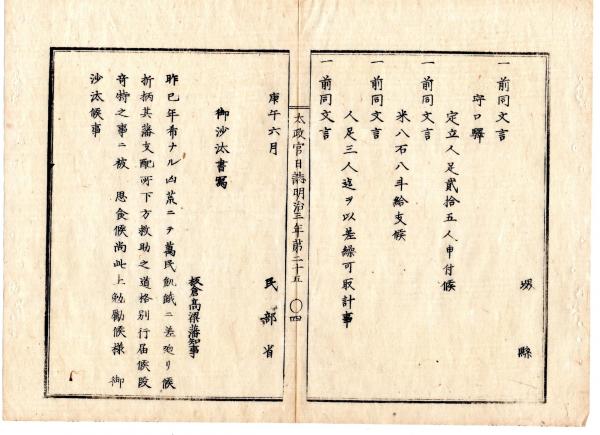 一　前同文言　堺縣
守口驛
定立人足貳拾五人申付候
一　前同文言
米八石八斗給支候
一　前同文言
人足三人迄ヲ以差繰可取計事
一　前同文言
太政官日誌明治三年第二十五　〇四
庚午六月　民部省
御沙汰書寫
板倉高梁藩知事
昨巳年希ナル凶荒ニテ萬民飢餓ニ差迫リ候
折柄其藩支配所下方救助之道格別行届候段
奇特之事ニ被　思食候尚此上勉勵候様　御
沙汰候事